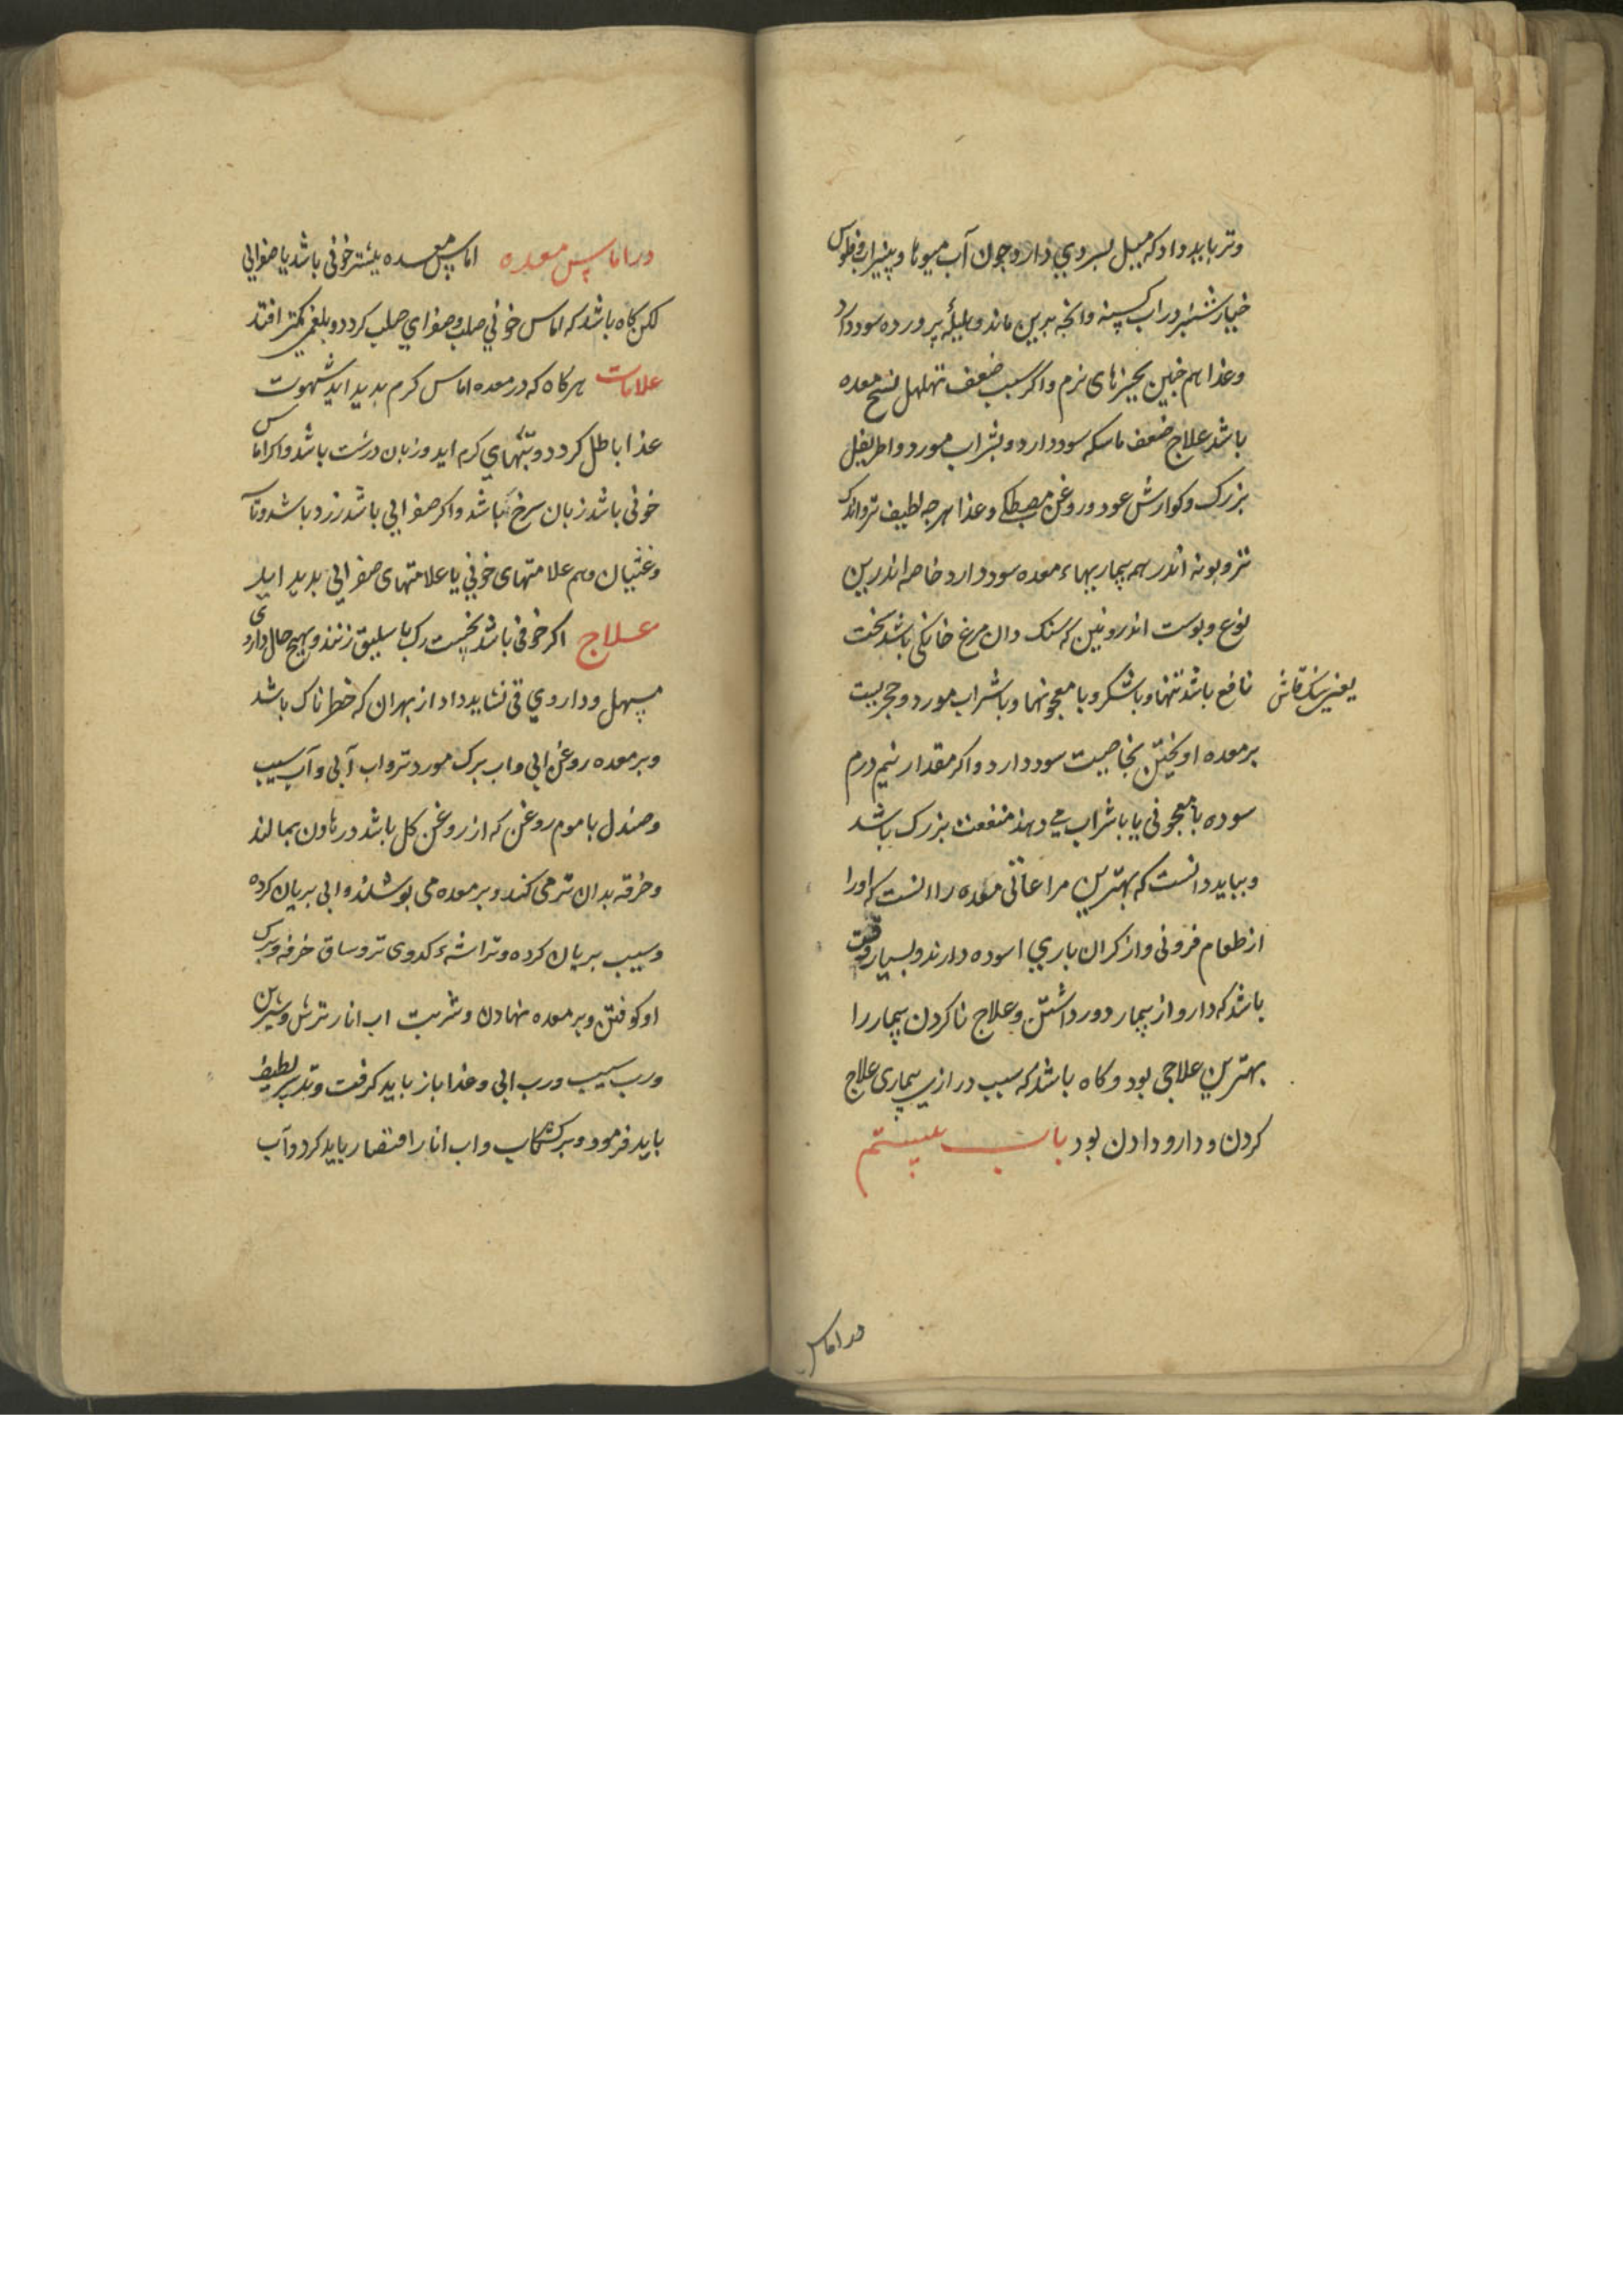 وتر باید داد که میل بسردی دارد چون آب میوها و پنیراب و فلوس
خیارشنبر در اب کسنه وانچه بدین ماند وهلیلهٔ پرورده سود دارد
وغذا هم چنین بچیزهای نرم واگر سبب ضعف تهلهل نسج معده
باشد علاج ضعف ماسکه سود دارد وشراب مورد واطریفل
بزرک وکوارش عود وروغن مصطکی وغذا هرچه لطیف تر واندک
تر وپونه اندر همه بیماریهاء معده سود دارد خاصه اندرین
نوع وپوست اندرونین که سنک دان مرغ خانکی باشد سخت
نافع باشد تنها وباشکر وبا معجونها وباشراب مورد وحجر یست
یعنی سنک
بر معده اویختن بخاصیت سود دارد واکر مقدار نیم درم
سوده با معجونی یا باشراب می دهند منفعت بزرک باشد
وبباید دانست که بهترین مراعاتی معده را انست که اورا
از طعام فزونی واز کران باری اسوده دارند وبسیار وقت
باشد که دارو از بیمار دور داشتن وعلاج ناکردن بیمار را
بهترین علاجی بود وکاه باشد که سبب درازی بیماری علاج
کردن ودارو دادن بود باب بیستم
در اماس
در اماس معده اماس معده بیشتر خونی باشد یا صفرایی
لکن کاه باشد که اماس خونی صلب وصفرای صلب کردد وبلغمی کمتر افتد
علامات هرکاه که در معده اماس کرم بدید اید شهوت
غذا باطل کردد وتبهای کرم اید وزبان درشت باشد واکر اماس
خونی باشد زبان سرخ باشد واکر صفرایی باشد زرد باشد وتا
وغثیان وهم علامتهای خونی یا علامتهای صفرایی بدید اید
علاج اکر خونی باشد نخست رک باسلیق زنند وبهیچ حال داروی
مسهل وداروی قی نشاید داد از بهر ان که خطرناک باشد
وبر معده روغن ابی واب برک مورد تر واب آبی وآب سیب
وصندل با موم روغن که از روغن کل باشد در هاون بمالند
وخرقه بدان تر می کنند وبر معده می پوشند وابی بریان کرده
وسیب بریان کرده وتراشهٔ کدوی تر وساق خرفه وبرک
او کوفتن وبر معده نهادن وشربت اب انار ترش وشیرین
ورب سیب ورب ابی وغذا باز باید کرفت وتدبیر لطیف
باید فرمود وبر کشکاب واب انار اقتصار باید کرد وآب